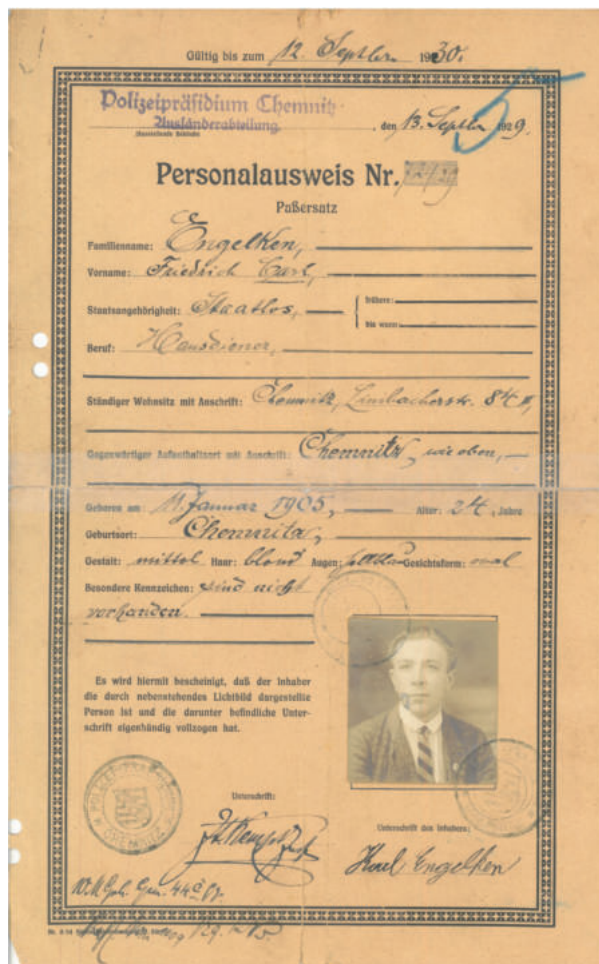 Gültig bis zum 12. Septbr. 1930.
Polizeipräsidium Chemnitz
Ausländerabteilung
(Ausstellende Behörde)
, den 13. Septbr. 1929.
Personalausweis Nr.
Paßersatz
Familienname: Engelken,
Vorname: Friedrich Carl,
Staatsangehörigkeit: Staatlos,
frühere:
bis wann:
Beruf: Hausdiener,
Ständiger Wohnsitz mit Anschrift: Chemnitz, Limbacherstr. 84 II,
Gegenwärtiger Aufenthaltsort mit Anschrift: Chemnitz, wie oben,
Geboren am: 11. Januar 1905, Alter: 24, Jahre
Geburtsort: Chemnitz,
Gestalt: mittel Haar: blond Augen: Gesichtsform: oval
Besondere Kennzeichen: sind nicht
vorhanden.
Es wird hiermit bescheinigt, daß der Inhaber
die durch nebenstehendes Lichtbild dargestellte
Person ist und die darunter befindliche Unter-
schrift eigenhändig vollzogen hat.
Unterschrift:
Unterschrift des Inhabers:
Karl Engelken
CHEMNITZ